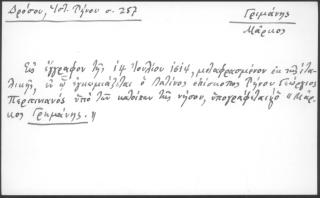 Δρόσου, Ἱστ. Τήνου σ. 257
Γριμάνης
Μᾶρκος
Εἰς ἔγγραφον τῆς 14 Ἰουλίου 1614, μεταφρασμένον ἐκ τῆς ἰτα-
λικῆς, ἐν ᾧ ἐγκωμιάζεται ὁ Λατῖνος ἐπίσκοπος Τήνου Γεώργιος
Περπινιανός ὑπό τῶν κατοίκων τῆς νήσου, ὑπογράφεται ὁ "Μᾶρ-
κος Γριμάνης."